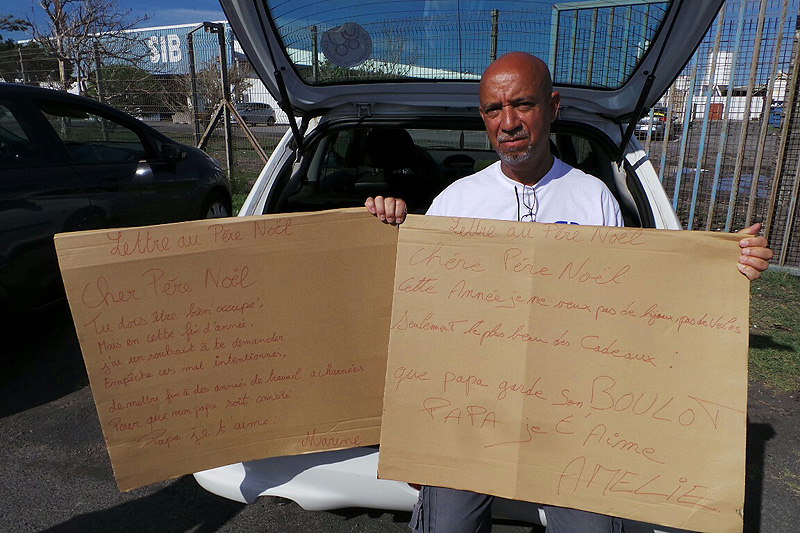 SIB
Lettre au Père Noël
Cher Père Noël
Tu dois être bien occupé,
Mais en cette fin d'année.
j'ai un souhait à te demander
Empêche ces mal intentionnés,
de mettre fin à des années de travail acharnées
Pour que mon papa soit comblé
Papa je t'aime
Marine
Lettre au Père Noël
Chère Père Noël
Cette Année je ne veux pas de bijoux, pas de Vélos
Seulement le plus beau des Cadeaux :
que papa garde son BOULOT
PAPA je t'Aime
AMELIE